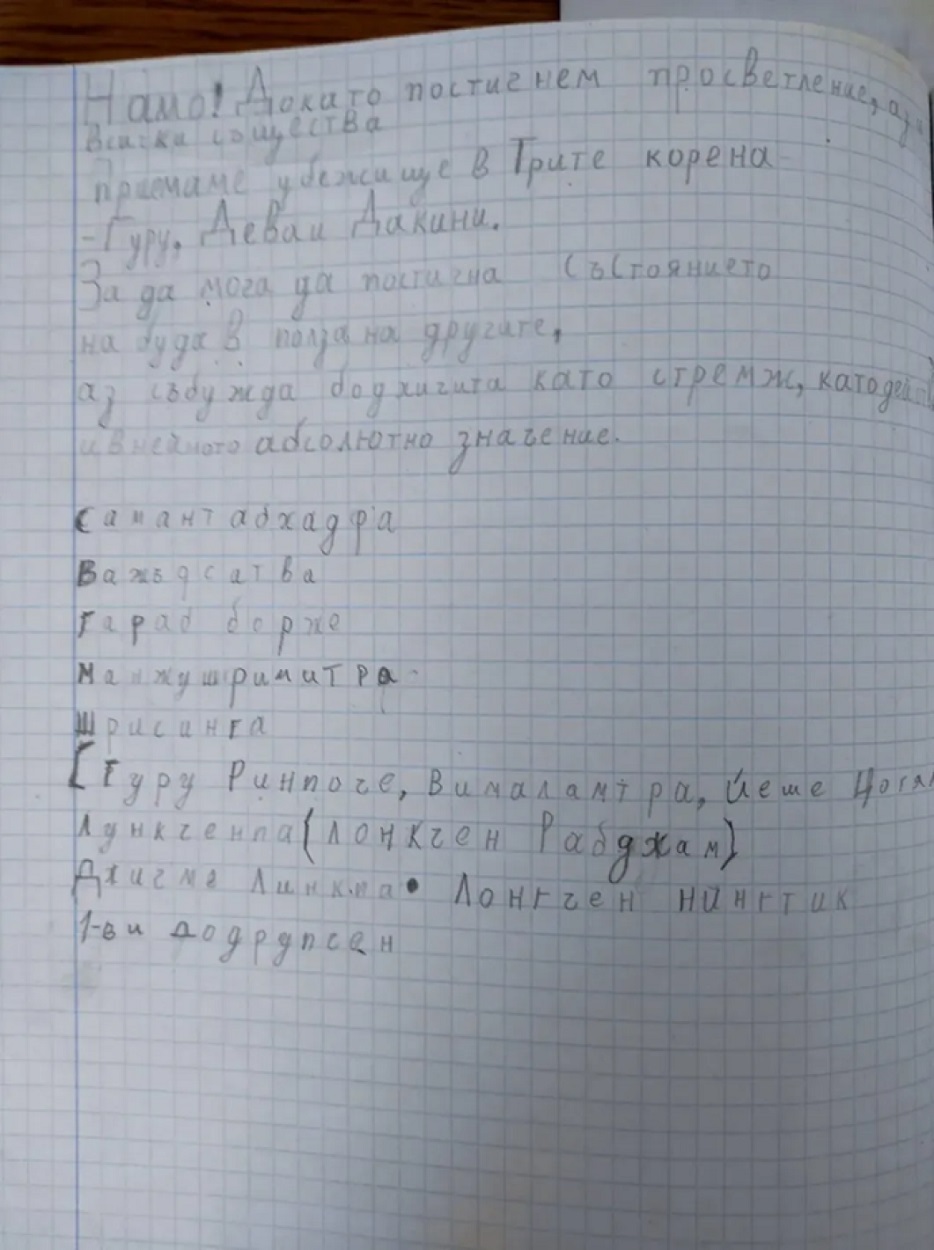 Намо! Докато постигнем просветление, аз
всички същества
Приемаме убежище в Трите корена
-Гуру, Деваи Дакини.
За да мога да постигна състоянието
на буда в полза на другите,
аз събужда бодхичита като стремж, като
абсолютно значение.
Самантабхадра
Важъдсатва
гараб борже
Манжушримитра
Шрисинга
[Гуру Ринпоче, Вималамтра, Йеше Цогял
Лункченпа(Лонкчен Рабджам)
Джигме Линкпа• Лонгчен нингтик
1-ви додрупсен